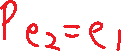 Pe₂=e₁